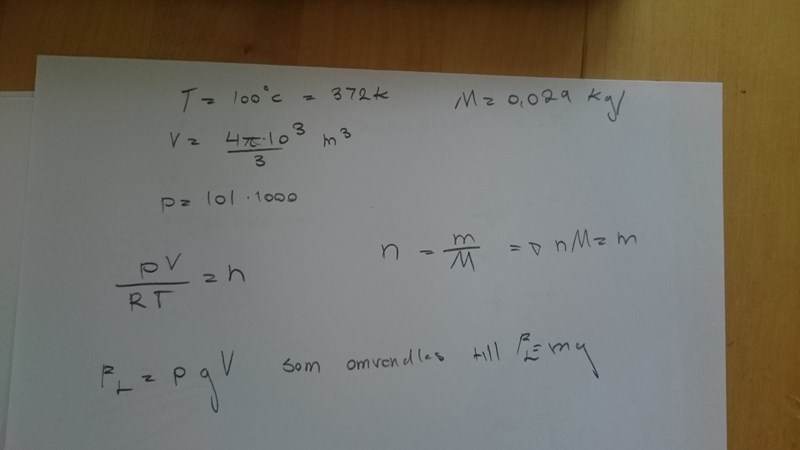 T = 100°C = 372K M = 0,029 kg/
V = 4π·10³/3 m³
p = 101·1000
pV/RT = n n = m/M => nM = m
F_L = ρgV som omvendles till F_L = mg